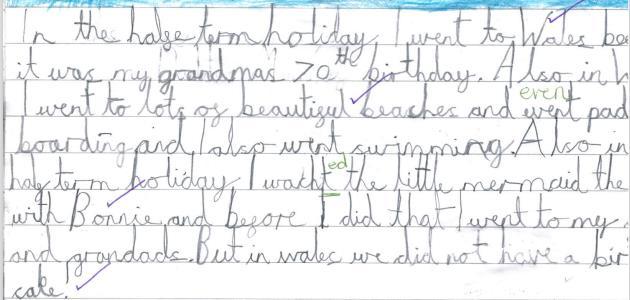 In the halfe term holiday I went to Wales be
it was my grandmas 70th birthday. Also in W
I went to lots of beautiful beaches and went even pad
boarding and I also went swimming. Also in
half term holiday I wacht ed the little mermaid the
with Bonnie and before I did that I went to my
and grandads. But in wales we did not have a bir
cake.